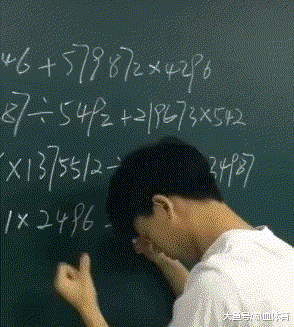 46 + 579872×4296
87÷5492+219673×542
×1375512÷ 34987
1×2496
大鱼号